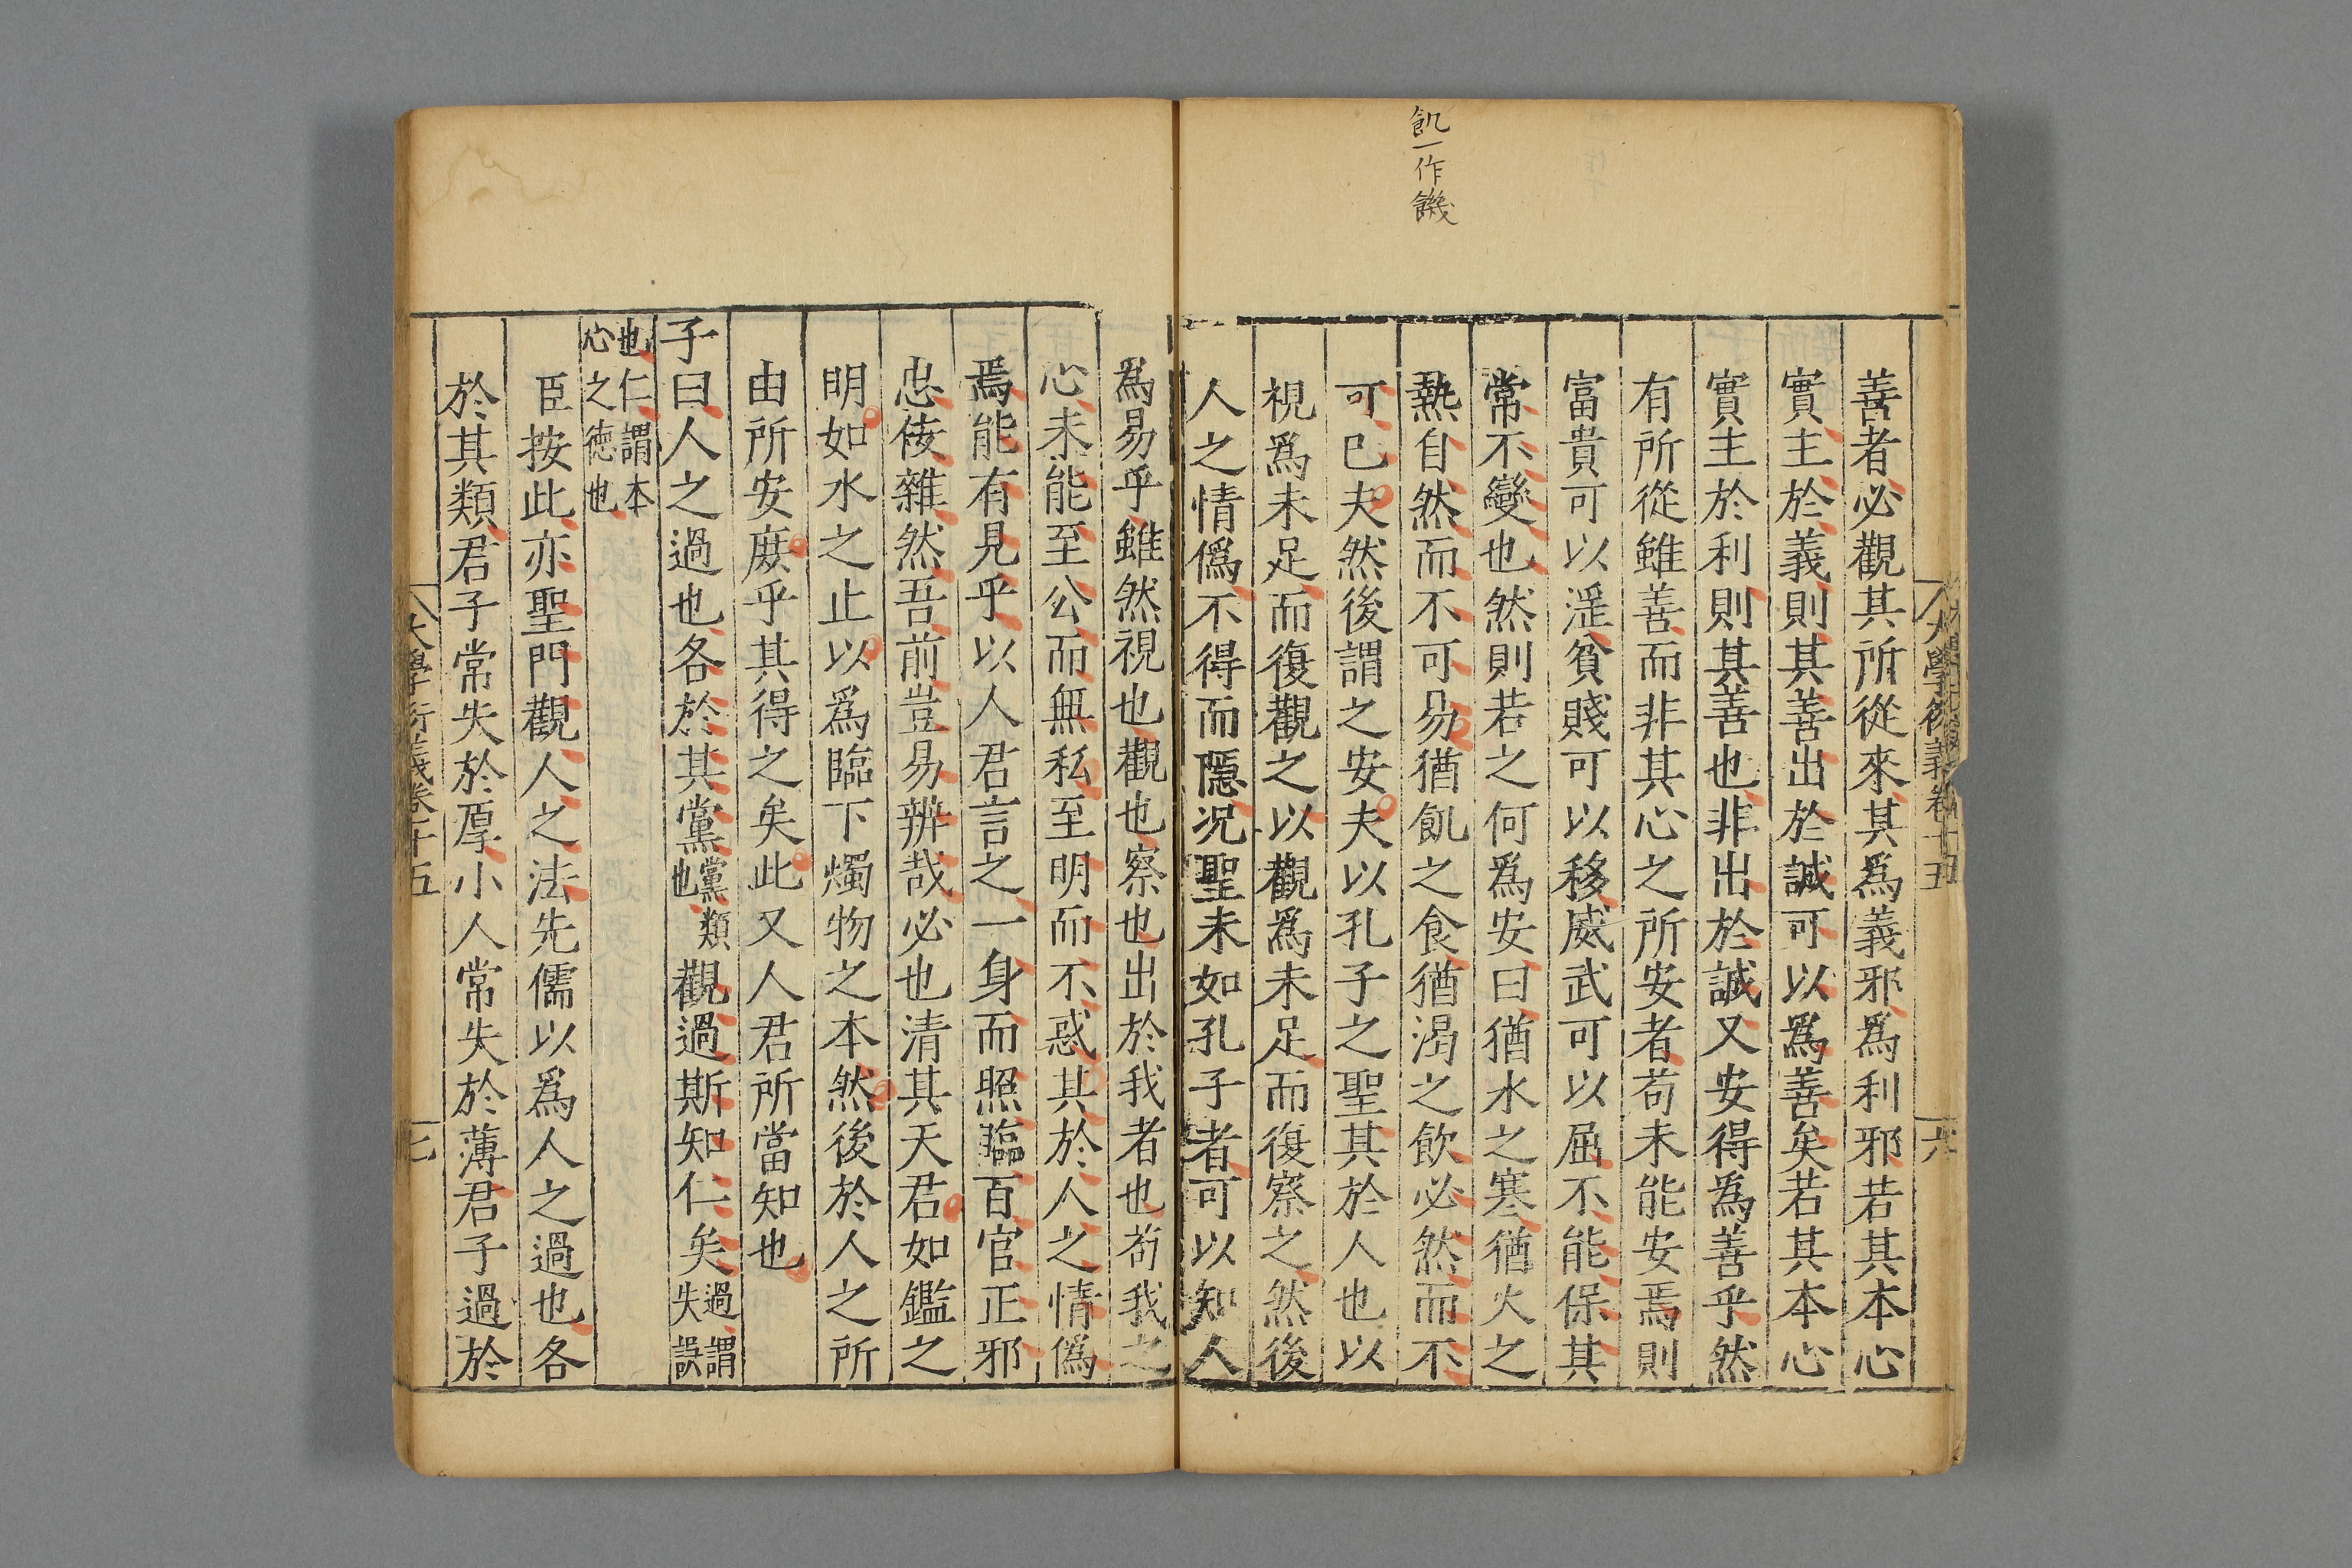 飢一作饑
大學衍義卷十五
六
善者必觀其所從來其爲義邪爲利邪若其本心
實主於義則其善出於誠可以爲善矣若其本心
實主於利則其善也非出於誠又安得爲善乎然
有所從雖善而非其心之所安者苟未能安焉則
富貴可以淫貧賤可以移威武可以屈不能保其
常不變也然則若之何爲安曰猶水之寒猶火之
熱自然而不可易猶飢之食猶渴之飲必然而不
可已夫然後謂之安夫以孔子之聖其於人也以
視爲未足而復觀之以觀爲未足而復察之然後
人之情僞不得而隱况聖未如孔子者可以知人
爲易乎雖然視也觀也察也出於我者也苟我之
心未能至公而無私至明而不惑其於人之情僞
焉能有見乎以人君言之一身而照臨百官正邪
忠佞雜然吾前豈易辨哉必也清其天君如鑑之
明如水之止以爲臨下燭物之本然後於人之所
由所安庶乎其得之矣此又人君所當知也
子曰人之過也各於其黨黨類也觀過斯知仁矣過謂失誤
也仁謂本心之德也
臣按此亦聖門觀人之法先儒以爲人之過也各
於其類君子常失於厚小人常失於薄君子過於
大學衍義卷十五
七